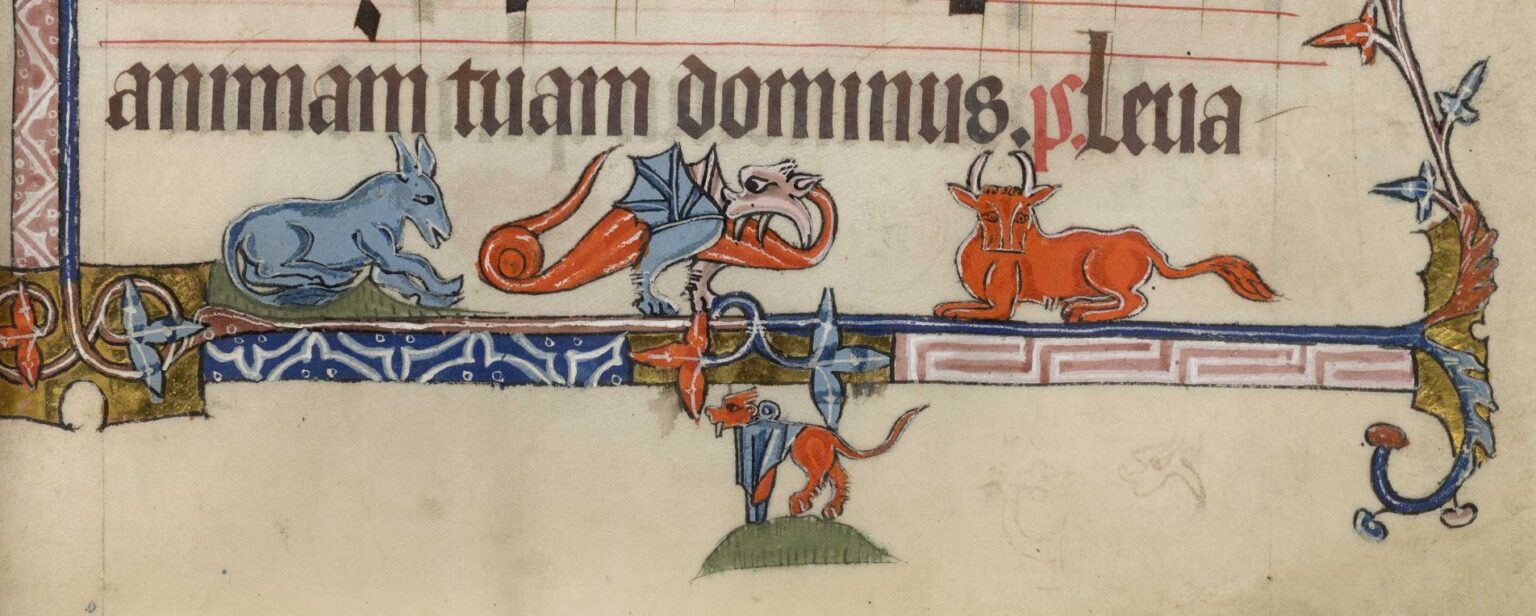 animam tuam dominus. p̅s. Leua